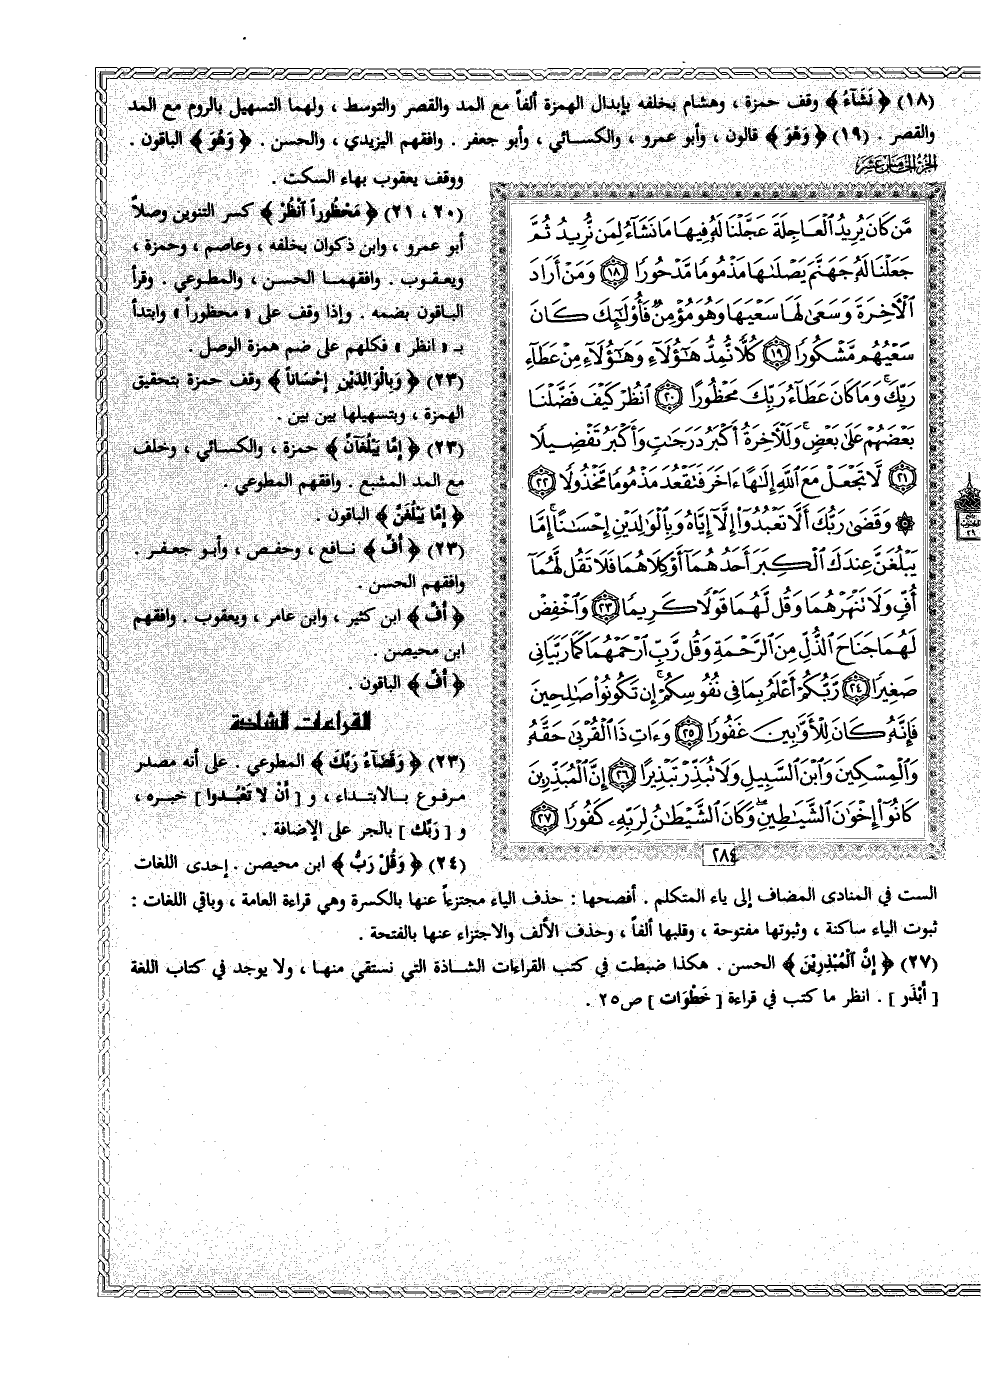 (١٨) ﴿ نَشَآءُ ﴾ وقف حمزة ، وهشام بخلفه بإبدال الهمزة ألفاً مع المد والقصر والتوسط ، ولهما التسهيل بالروم مع المد
والقصر . (١٩) ﴿ وَهْوَ ﴾ قالون ، وأبو عمرو ، والكسائي ، وأبو جعفر . وافقهم اليزيدي ، والحسن . ﴿ وَهُوَ ﴾ الباقون .
ووقف يعقوب بهاء السكت .
(٢٠ ، ٢١) ﴿ مَحْظُوراً انْظُرْ ﴾ كسر التنوين وصلاً
أبو عمرو ، وابن ذكوان بخلفه ، وعاصم ، وحمزة ،
ويعقوب . وافقهما الحسن ، والمطوعي . وقرأ
الباقون بضمه . وإذا وقف على « محظوراً » وابتدأ
بـ « انظر » فكلهم على ضم همزة الوصل .
(٢٣) ﴿ وَبِالْوَالِدَيْنِ إِحْسَاناً ﴾ وقف حمزة بتحقيق
الهمزة ، وبتسهيلها بين بين .
(٢٣) ﴿ إِمَّا يَبْلُغَآنِّ ﴾ حمزة ، والكسائي ، وخلف
مع المد المشبع . وافقهم المطوعي .
﴿ إِمَّا يَبْلُغَنَّ ﴾ الباقون .
(٢٣) ﴿ أُفٍّ ﴾ نافع ، وحفص ، وأبو جعفر .
وافقهم الحسن .
﴿ أُفَّ ﴾ ابن كثير ، وابن عامر ، ويعقوب . وافقهم
ابن محيصن .
﴿ أُفِّ ﴾ الباقون .
القراءات الشاذة
(٢٣) ﴿ وَقَضَآءُ رَبِّكَ ﴾ المطوعي . على أنه مصدر
مرفوع بالابتداء ، و [ أَنْ لا تَعْبُدوا ] خبره ،
و [ رَبِّك ] بالجر على الإضافة .
(٢٤) ﴿ وَقُلْ رَبُّ ﴾ ابن محيصن . إحدى اللغات
الجزء الخامس عشر
مَّن كَانَ يُرِيدُ ٱلْعَاجِلَةَ عَجَّلْنَا لَهُۥ فِيهَا مَا نَشَآءُ لِمَن نُّرِيدُ ثُمَّ
جَعَلْنَا لَهُۥ جَهَنَّمَ يَصْلَىٰهَا مَذْمُومًا مَّدْحُورًا ١٨ وَمَنْ أَرَادَ
ٱلْأَخِرَةَ وَسَعَىٰ لَهَا سَعْيَهَا وَهُوَ مُؤْمِنٌ فَأُو۟لَٰٓئِكَ كَانَ
سَعْيُهُم مَّشْكُورًا ١٩ كُلًّا نُّمِدُّ هَٰٓؤُلَآءِ وَهَٰٓؤُلَآءِ مِنْ عَطَآءِ
رَبِّكَ ۚ وَمَا كَانَ عَطَآءُ رَبِّكَ مَحْظُورًا ٢٠ ٱنظُرْ كَيْفَ فَضَّلْنَا
بَعْضَهُمْ عَلَىٰ بَعْضٍ ۚ وَلَلْأَخِرَةُ أَكْبَرُ دَرَجَٰتٍ وَأَكْبَرُ تَفْضِيلًا
٢١ لَّا تَجْعَلْ مَعَ ٱللَّهِ إِلَٰهًا ءَاخَرَ فَتَقْعُدَ مَذْمُومًا مَّخْذُولًا ٢٢
۞ وَقَضَىٰ رَبُّكَ أَلَّا تَعْبُدُوٓا۟ إِلَّآ إِيَّاهُ وَبِٱلْوَٰلِدَيْنِ إِحْسَٰنًا ۚ إِمَّا
يَبْلُغَنَّ عِندَكَ ٱلْكِبَرَ أَحَدُهُمَآ أَوْ كِلَاهُمَا فَلَا تَقُل لَّهُمَآ
أُفٍّ وَلَا تَنْهَرْهُمَا وَقُل لَّهُمَا قَوْلًا كَرِيمًا ٢٣ وَٱخْفِضْ
لَهُمَا جَنَاحَ ٱلذُّلِّ مِنَ ٱلرَّحْمَةِ وَقُل رَّبِّ ٱرْحَمْهُمَا كَمَا رَبَّيَانِى
صَغِيرًا ٢٤ رَّبُّكُمْ أَعْلَمُ بِمَا فِى نُفُوسِكُمْ ۚ إِن تَكُونُوا۟ صَٰلِحِينَ
فَإِنَّهُۥ كَانَ لِلْأَوَّٰبِينَ غَفُورًا ٢٥ وَءَاتِ ذَا ٱلْقُرْبَىٰ حَقَّهُۥ
وَٱلْمِسْكِينَ وَٱبْنَ ٱلسَّبِيلِ وَلَا تُبَذِّرْ تَبْذِيرًا ٢٦ إِنَّ ٱلْمُبَذِّرِينَ
كَانُوٓا۟ إِخْوَٰنَ ٱلشَّيَٰطِينِ ۖ وَكَانَ ٱلشَّيْطَٰنُ لِرَبِّهِۦ كَفُورًا ٢٧
٢٨٤
الست في المنادى المضاف إلى ياء المتكلم . أفصحها : حذف الياء مجتزءاً عنها بالكسرة وهي قراءة العامة ، وباقي اللغات :
ثبوت الياء ساكنة ، وثبوتها مفتوحة ، وقلبها ألفاً ، وحذف الألف والاجتزاء عنها بالفتحة .
(٢٧) ﴿ إِنَّ الْمُبْذِرِيْنَ ﴾ الحسن . هكذا ضبطت في كتب القراءات الشاذة التي نستقي منها ، ولا يوجد في كتاب اللغة
[ أَبْذَر ] . انظر ما كتب في قراءة [ خَطْوَات ] ص٢٥ .